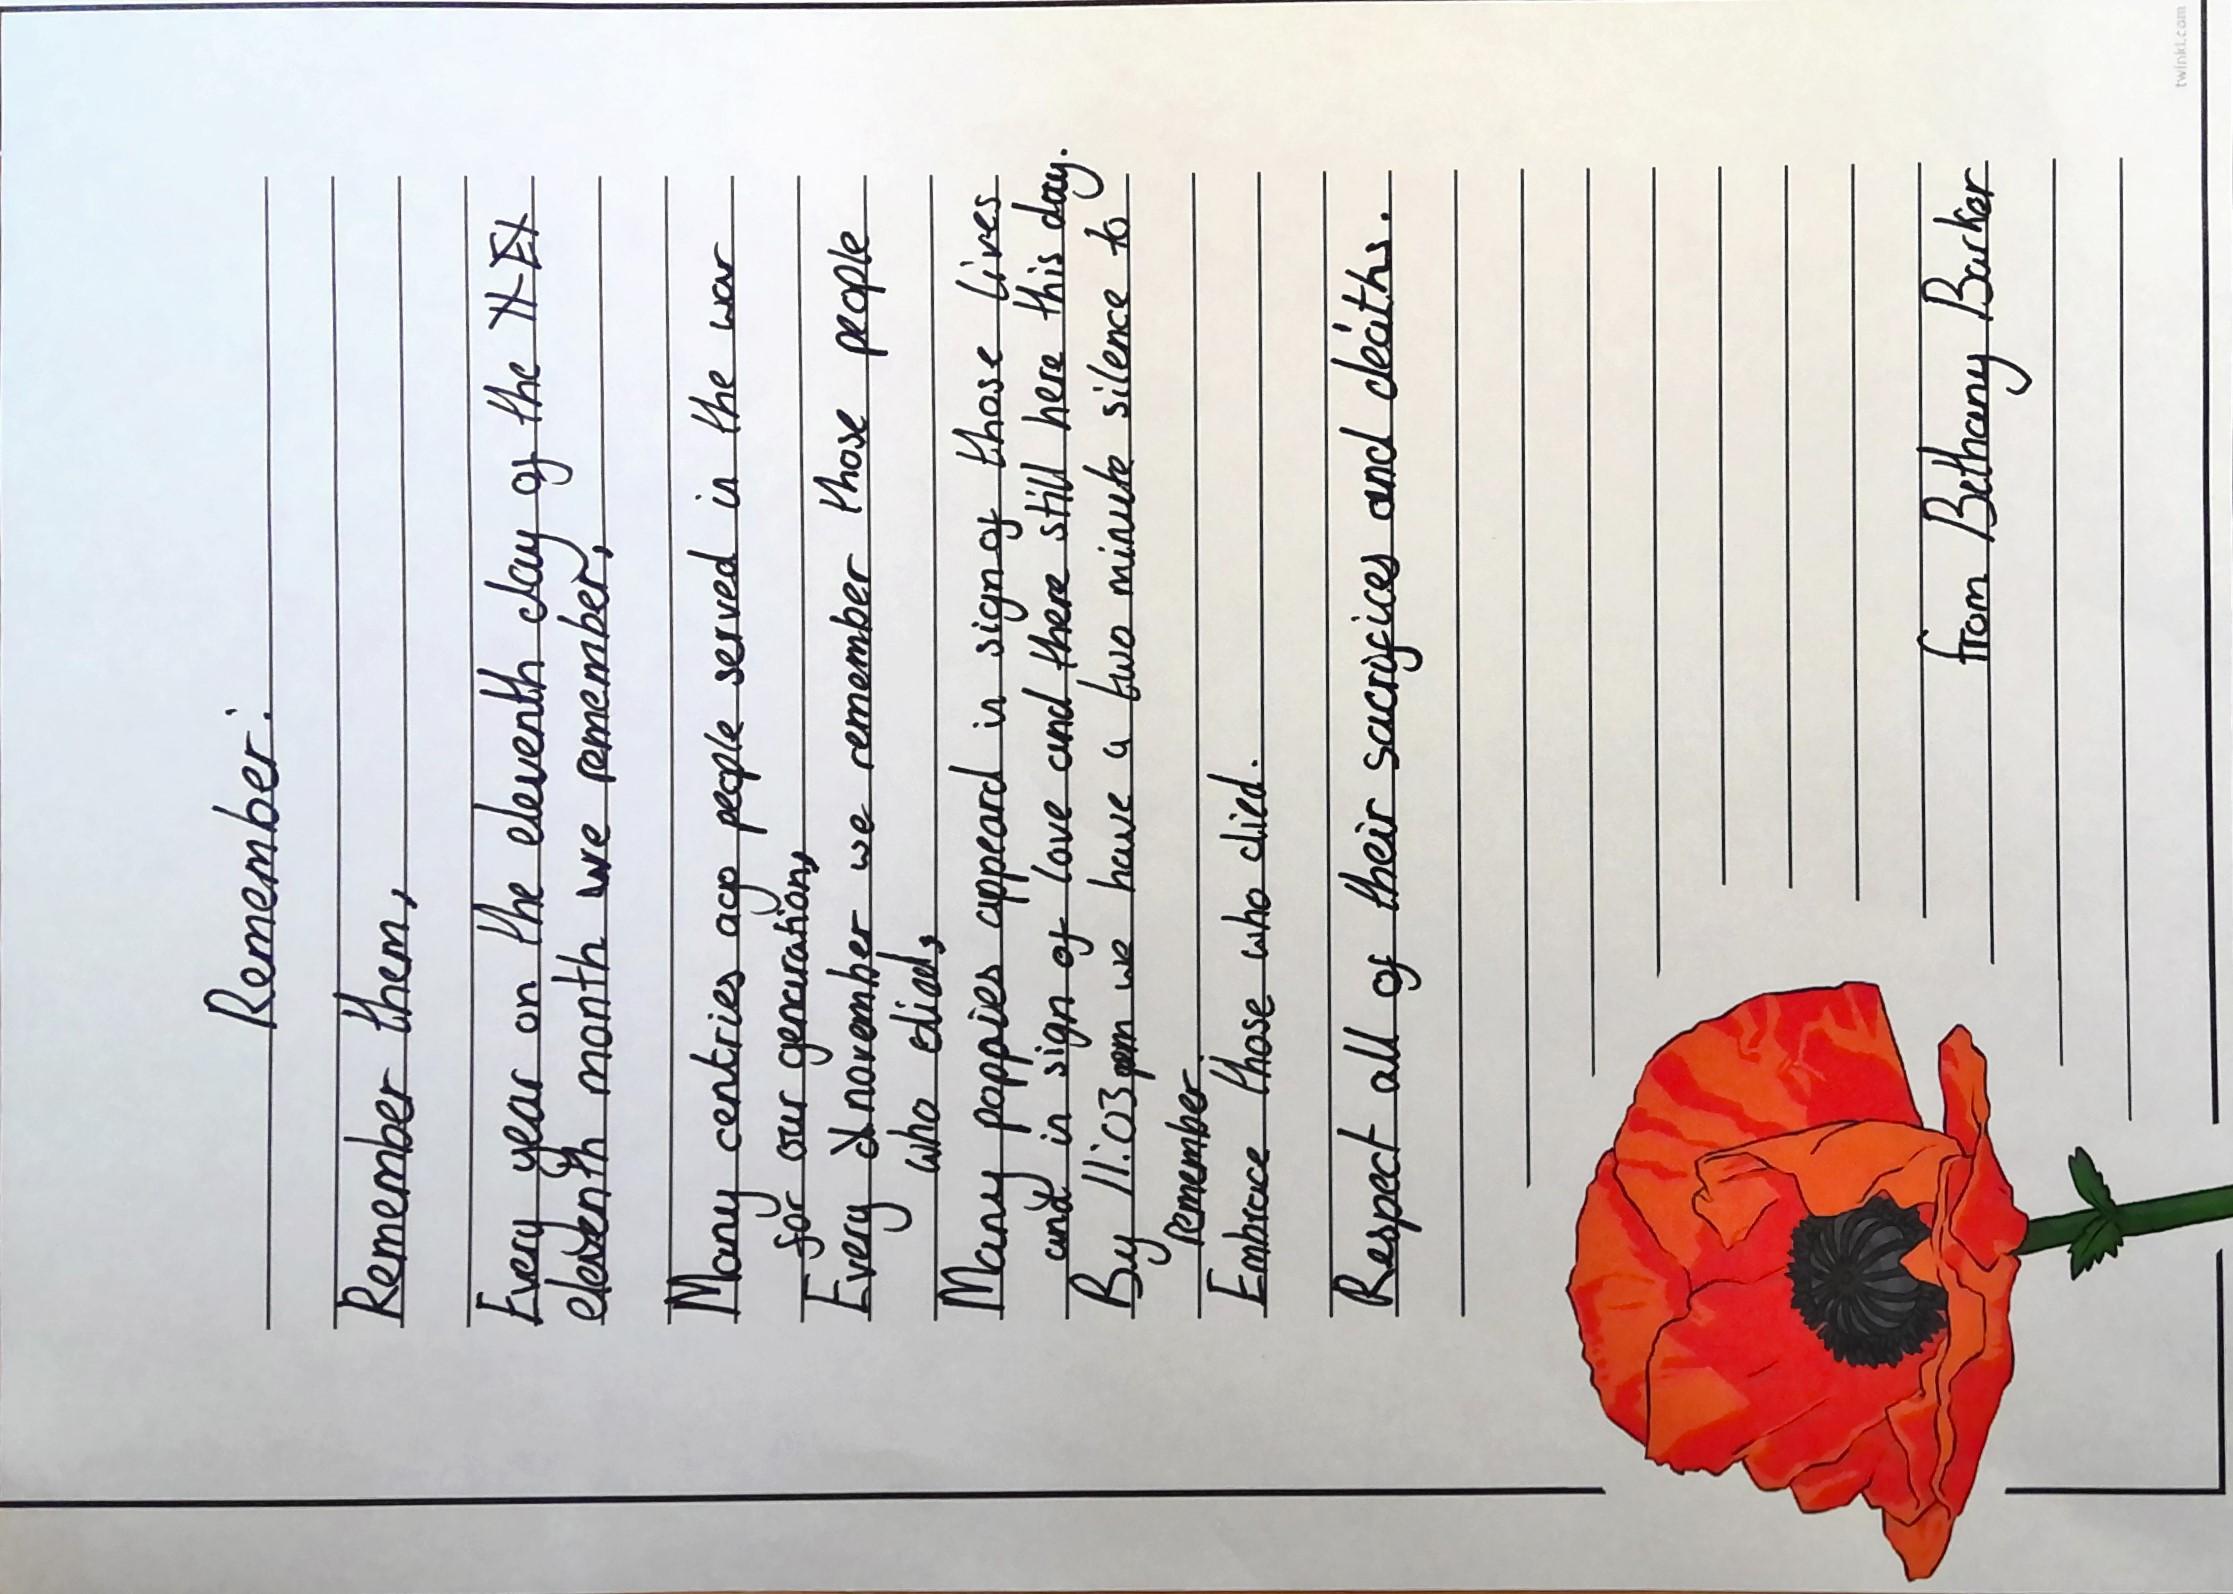 Remember.
Remember them,
Every year on the eleventh day of the
eleventh month we remember,
Many centries ago people served in the war
for our genaration,
Every november we remember those people
who died,
Many poppies appeard in sign of those lives
and in sign of love and there still here this day.
By 11:03 pm we have a two minute silence to
remember
Embrace those who died.
Respect all of their sacrifices and deaths.
from Bethany Barker
twinkl.com